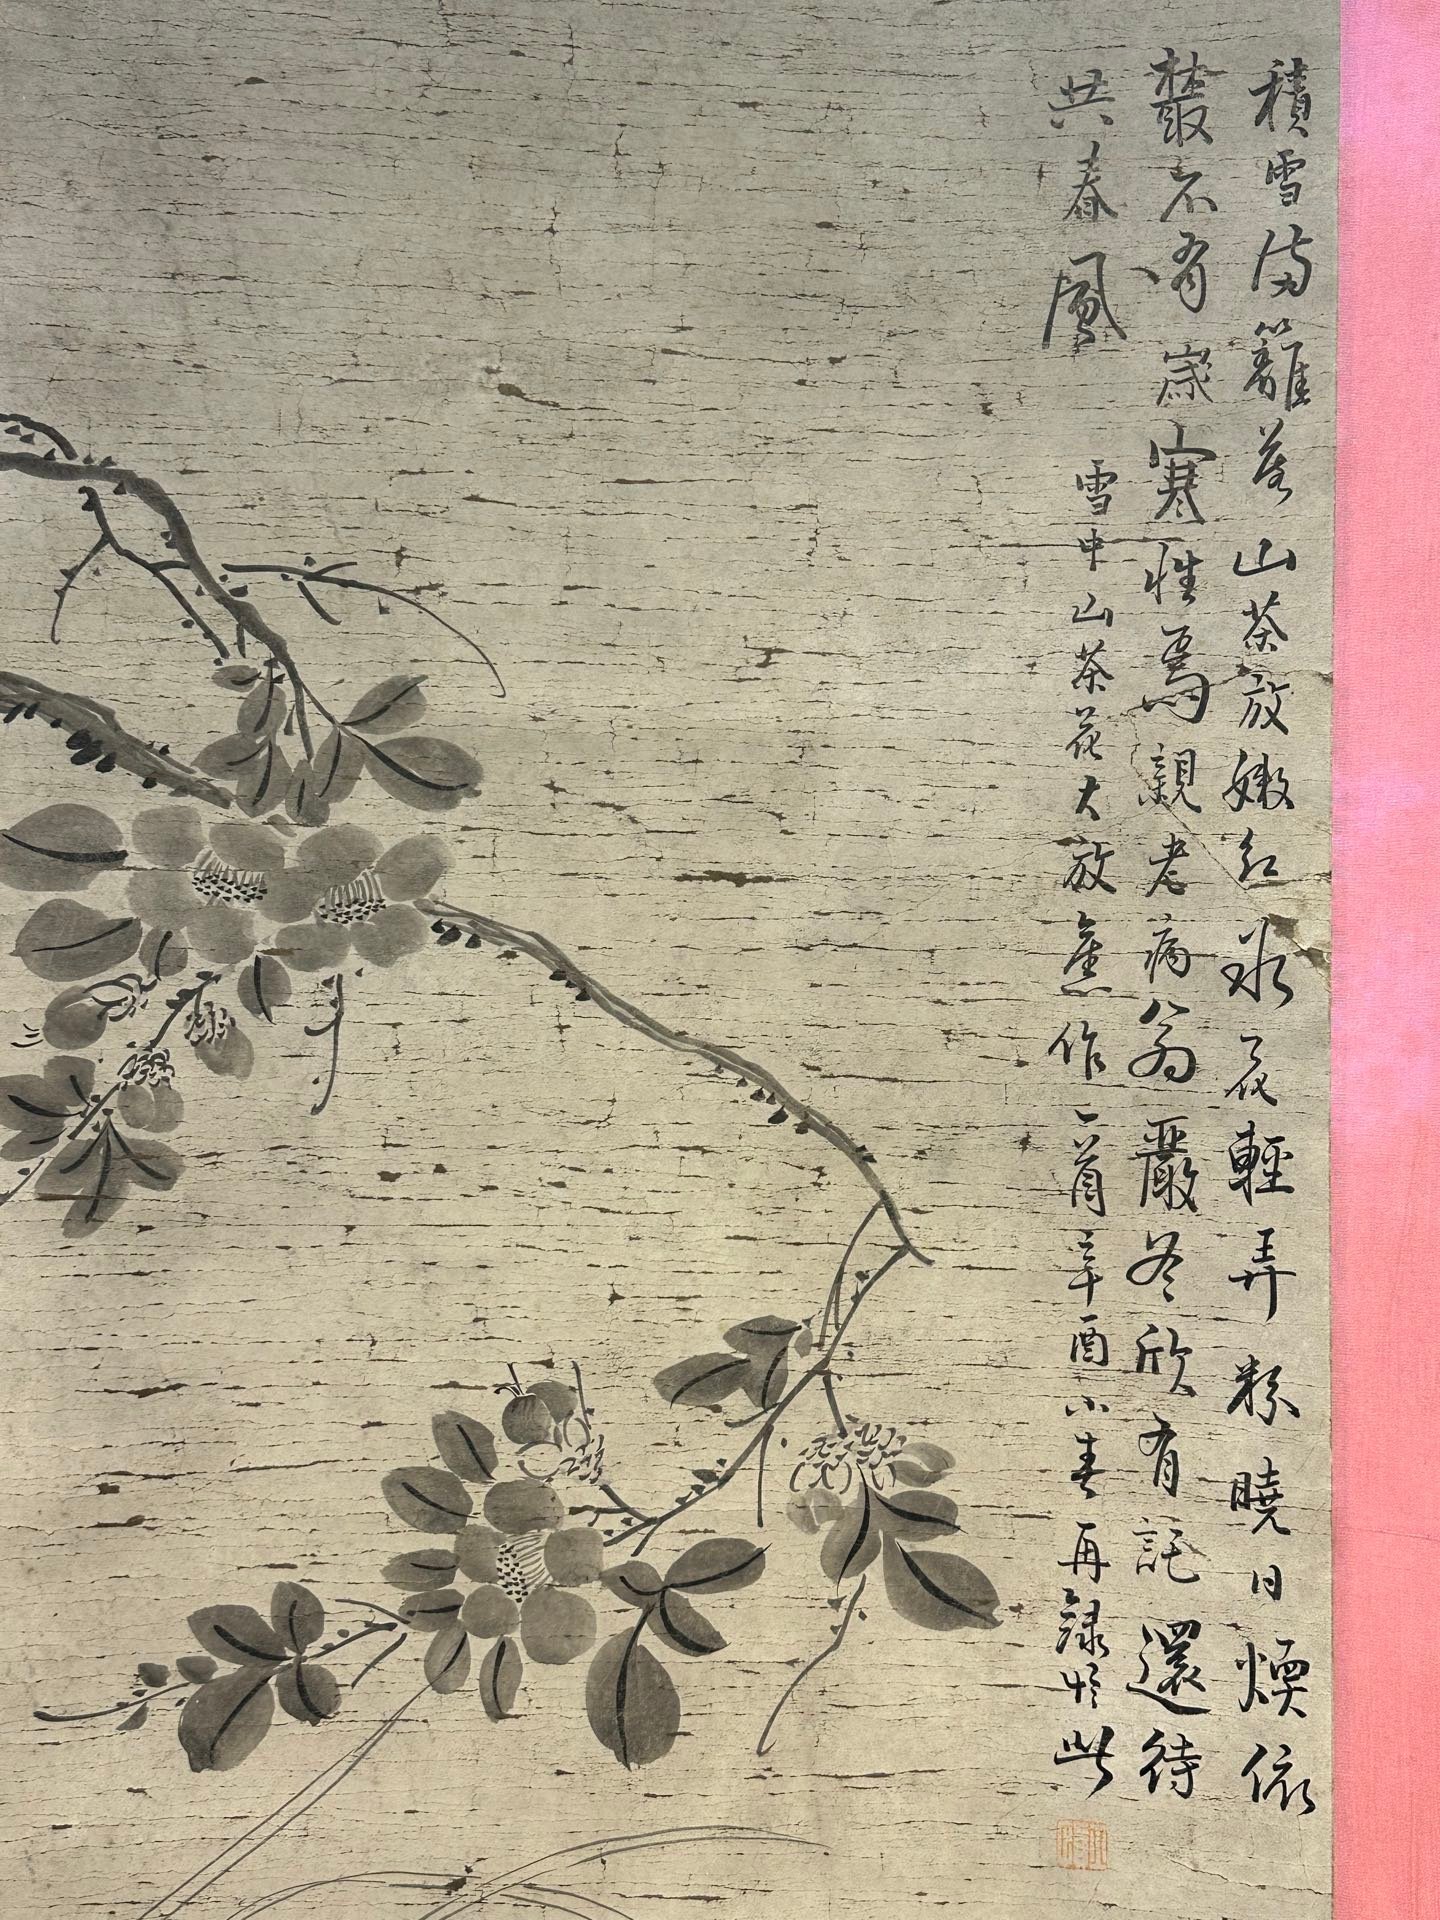 積雪滿籬落山茶放嫩紅冰花輕弄粉曉日煖依
叢不有歲寒性焉親老病翁嚴冬欣有託還待
共春風
雪中山茶花大放舊作一首辛酉小春再錄於此